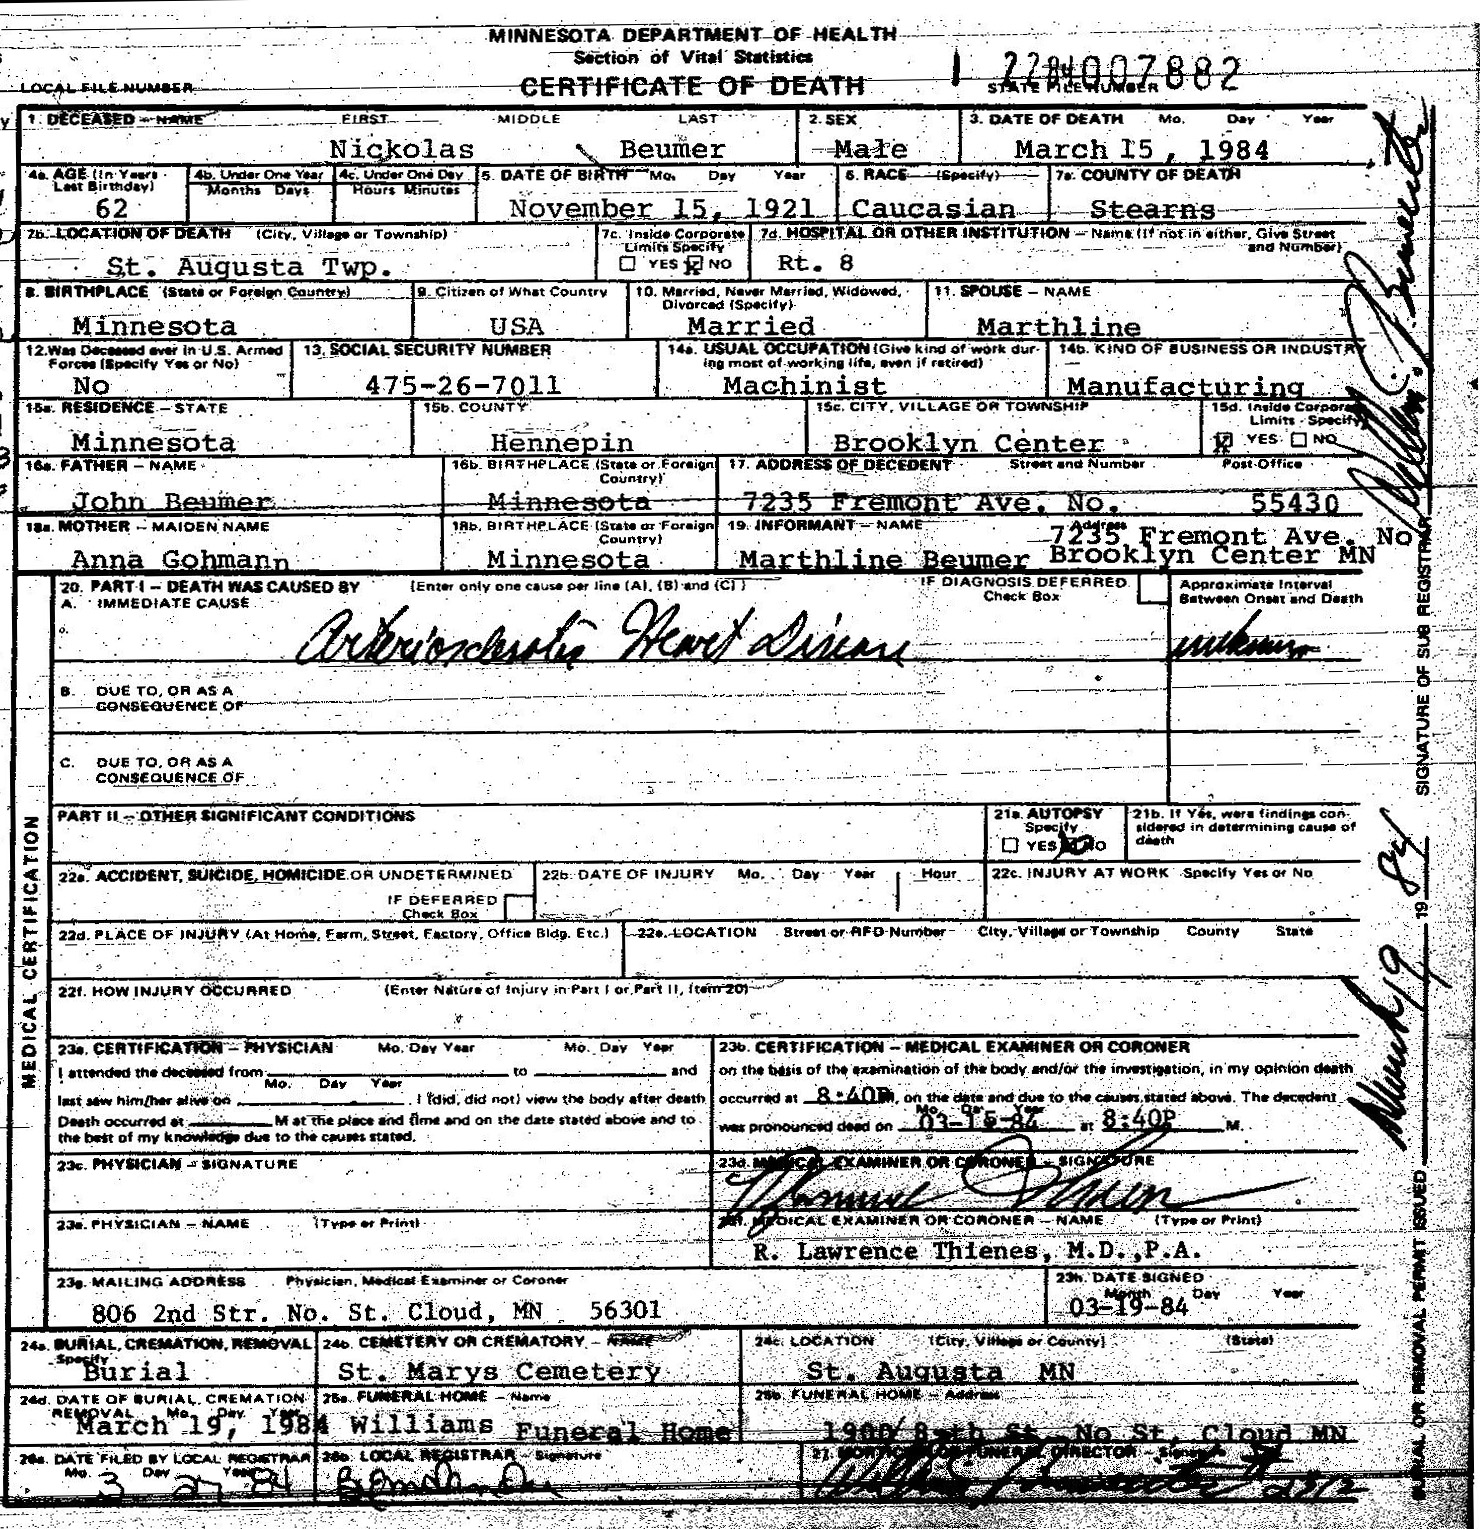 MINNESOTA DEPARTMENT OF HEALTH
Section of Vital Statistics
CERTIFICATE OF DEATH
LOCAL FILE NUMBER
STATE FILE NUMBER 007882
1. DECEASED — NAME FIRST MIDDLE LAST 2. SEX 3. DATE OF DEATH Mo. Day Year
Nickolas Beumer Male March 15, 1984
4a. AGE (In Years Last Birthday) 4b. Under One Year Months Days 4c. Under One Day Hours Minutes 5. DATE OF BIRTH Mo. Day Year 6. RACE (Specify) 7a. COUNTY OF DEATH
62 November 15, 1921 Caucasian Stearns
7b. LOCATION OF DEATH (City, Village or Township) 7c. Inside Corporate Limits Specify 7d. HOSPITAL OR OTHER INSTITUTION — Name (If not in either, Give Street and Number)
St. Augusta Twp. YES NO Rt. 8
8. BIRTHPLACE (State or Foreign Country) 9. Citizen of What Country 10. Married, Never Married, Widowed, Divorced (Specify) 11. SPOUSE — NAME
Minnesota USA Married Marthline
12. Was Deceased ever in U.S. Armed Forces (Specify Yes or No) 13. SOCIAL SECURITY NUMBER 14a. USUAL OCCUPATION (Give kind of work during most of working life, even if retired) 14b. KIND OF BUSINESS OR INDUSTRY
No 475-26-7011 Machinist Manufacturing
15a. RESIDENCE — STATE 15b. COUNTY 15c. CITY, VILLAGE OR TOWNSHIP 15d. Inside Corporate Limits - Specify
Minnesota Hennepin Brooklyn Center YES NO
16a. FATHER — NAME 16b. BIRTHPLACE (State or Foreign Country) 17. ADDRESS OF DECEDENT Street and Number Post Office
John Beumer Minnesota 7235 Fremont Ave. No. 55430
18a. MOTHER — MAIDEN NAME 18b. BIRTHPLACE (State or Foreign Country) 19. INFORMANT — NAME Address
7235 Fremont Ave. No
Anna Gohmann Minnesota Marthline Beumer Brooklyn Center MN
MEDICAL CERTIFICATION
20. PART I — DEATH WAS CAUSED BY (Enter only one cause per line (A), (B) and (C) ) IF DIAGNOSIS DEFERRED Check Box Approximate Interval Between Onset and Death
A. IMMEDIATE CAUSE
Arteriosclerotic Heart Disease unknown
B. DUE TO, OR AS A CONSEQUENCE OF
C. DUE TO, OR AS A CONSEQUENCE OF
PART II — OTHER SIGNIFICANT CONDITIONS 21a. AUTOPSY Specify YES NO 21b. If Yes, were findings considered in determining cause of death
22a. ACCIDENT, SUICIDE, HOMICIDE OR UNDETERMINED IF DEFERRED Check Box 22b. DATE OF INJURY Mo. Day Year Hour 22c. INJURY AT WORK Specify Yes or No
22d. PLACE OF INJURY (At Home, Farm, Street, Factory, Office Bldg. Etc.) 22e. LOCATION Street or RFD Number City, Village or Township County State
22f. HOW INJURY OCCURRED (Enter Nature of Injury in Part I or Part II, Item 20)
23a. CERTIFICATION — PHYSICIAN Mo. Day Year Mo. Day Year
I attended the deceased from to and
Mo. Day Year
last saw him/her alive on . I (did, did not) view the body after death
Death occurred at M at the place and time and on the date stated above and to
the best of my knowledge due to the causes stated.
23b. CERTIFICATION — MEDICAL EXAMINER OR CORONER
on the basis of the examination of the body and/or the investigation, in my opinion death
occurred at 8:40P m, on the date and due to the causes stated above. The decedent
Mo. Day Year
was pronounced dead on 03-15-84 at 8:40P M.
23c. PHYSICIAN — SIGNATURE 23d. MEDICAL EXAMINER OR CORONER — SIGNATURE
23e. PHYSICIAN — NAME (Type or Print) 23f. MEDICAL EXAMINER OR CORONER — NAME (Type or Print)
R. Lawrence Thienes, M.D.,P.A.
23g. MAILING ADDRESS Physician, Medical Examiner or Coroner 23h. DATE SIGNED Month Day Year
806 2nd Str. No. St. Cloud, MN 56301 03-19-84
24a. BURIAL, CREMATION, REMOVAL Specify 24b. CEMETERY OR CREMATORY — NAME 24c. LOCATION (City, Village or County) (State)
Burial St. Marys Cemetery St. Augusta MN
24d. DATE OF BURIAL, CREMATION REMOVAL Mo. Day Year 25a. FUNERAL HOME — Name 25b. FUNERAL HOME — Address
March 19, 1984 Williams Funeral Home St. No St. Cloud MN
26a. DATE FILED BY LOCAL REGISTRAR Mo. Day Year 26b. LOCAL REGISTRAR — Signature 27. MORTICIAN OR FUNERAL DIRECTOR — Signature
3 27 84
BURIAL OR REMOVAL PERMIT ISSUED March 19 1984 SIGNATURE OF SUB REGISTRAR